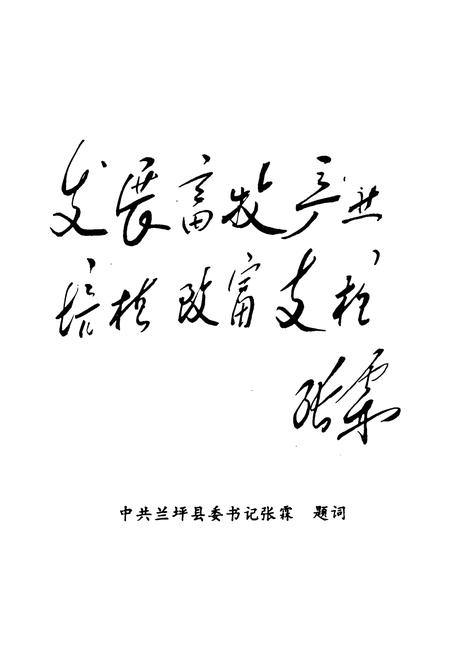 发展畜牧产业
培植致富支柱
张霖
中共兰坪县委书记张霖 题词